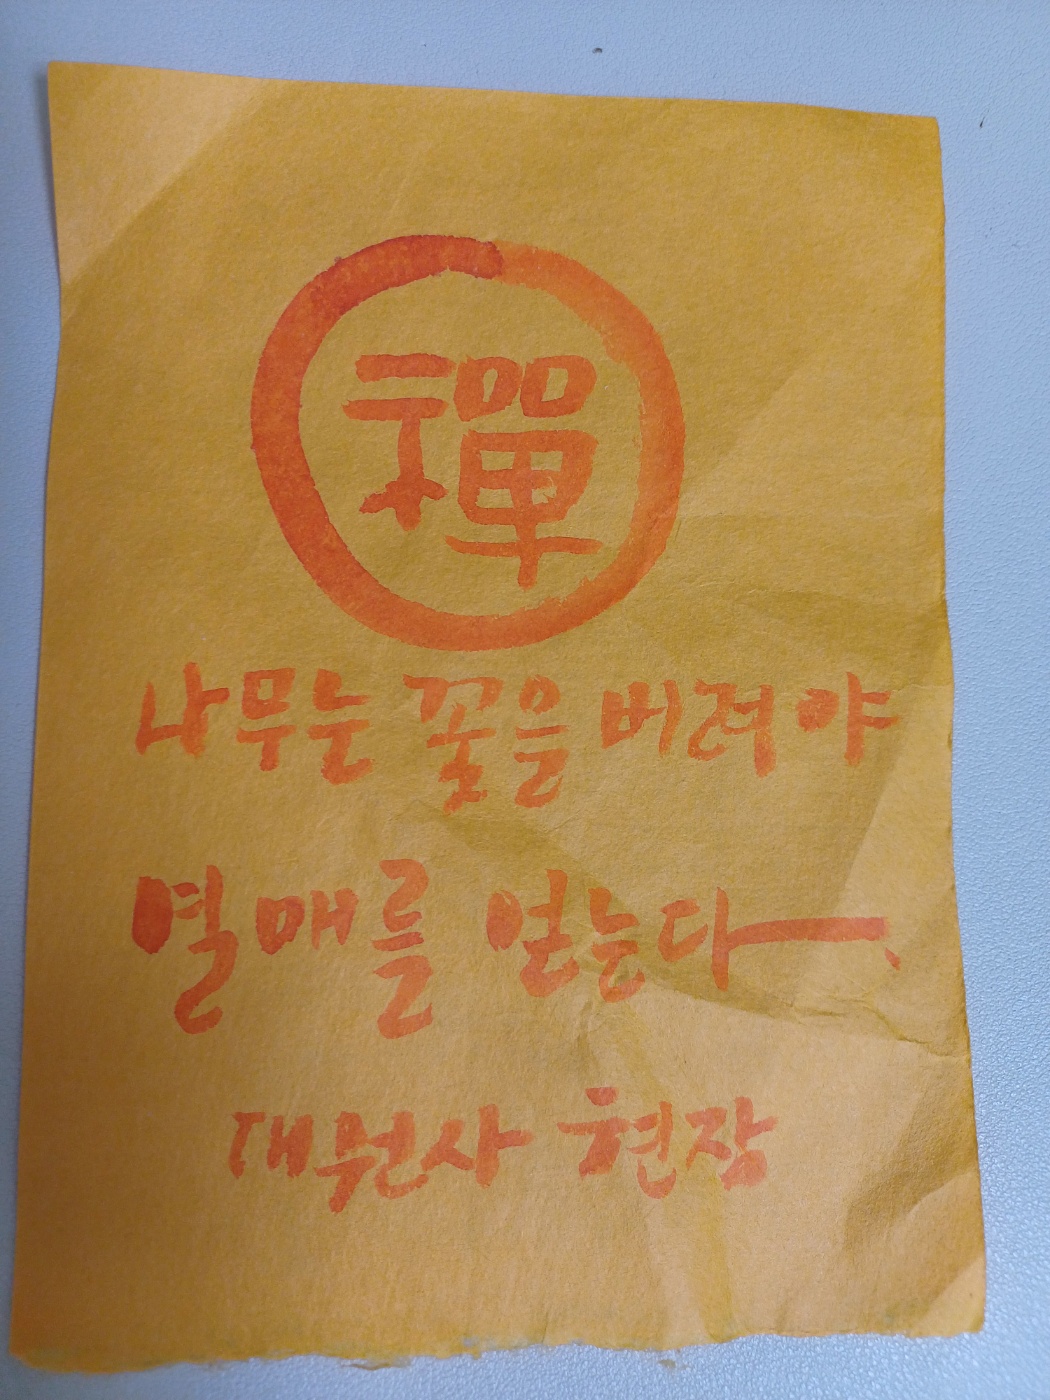 禪
나무는 꽃을 버려야
열매를 얻는다.
대원사 현장